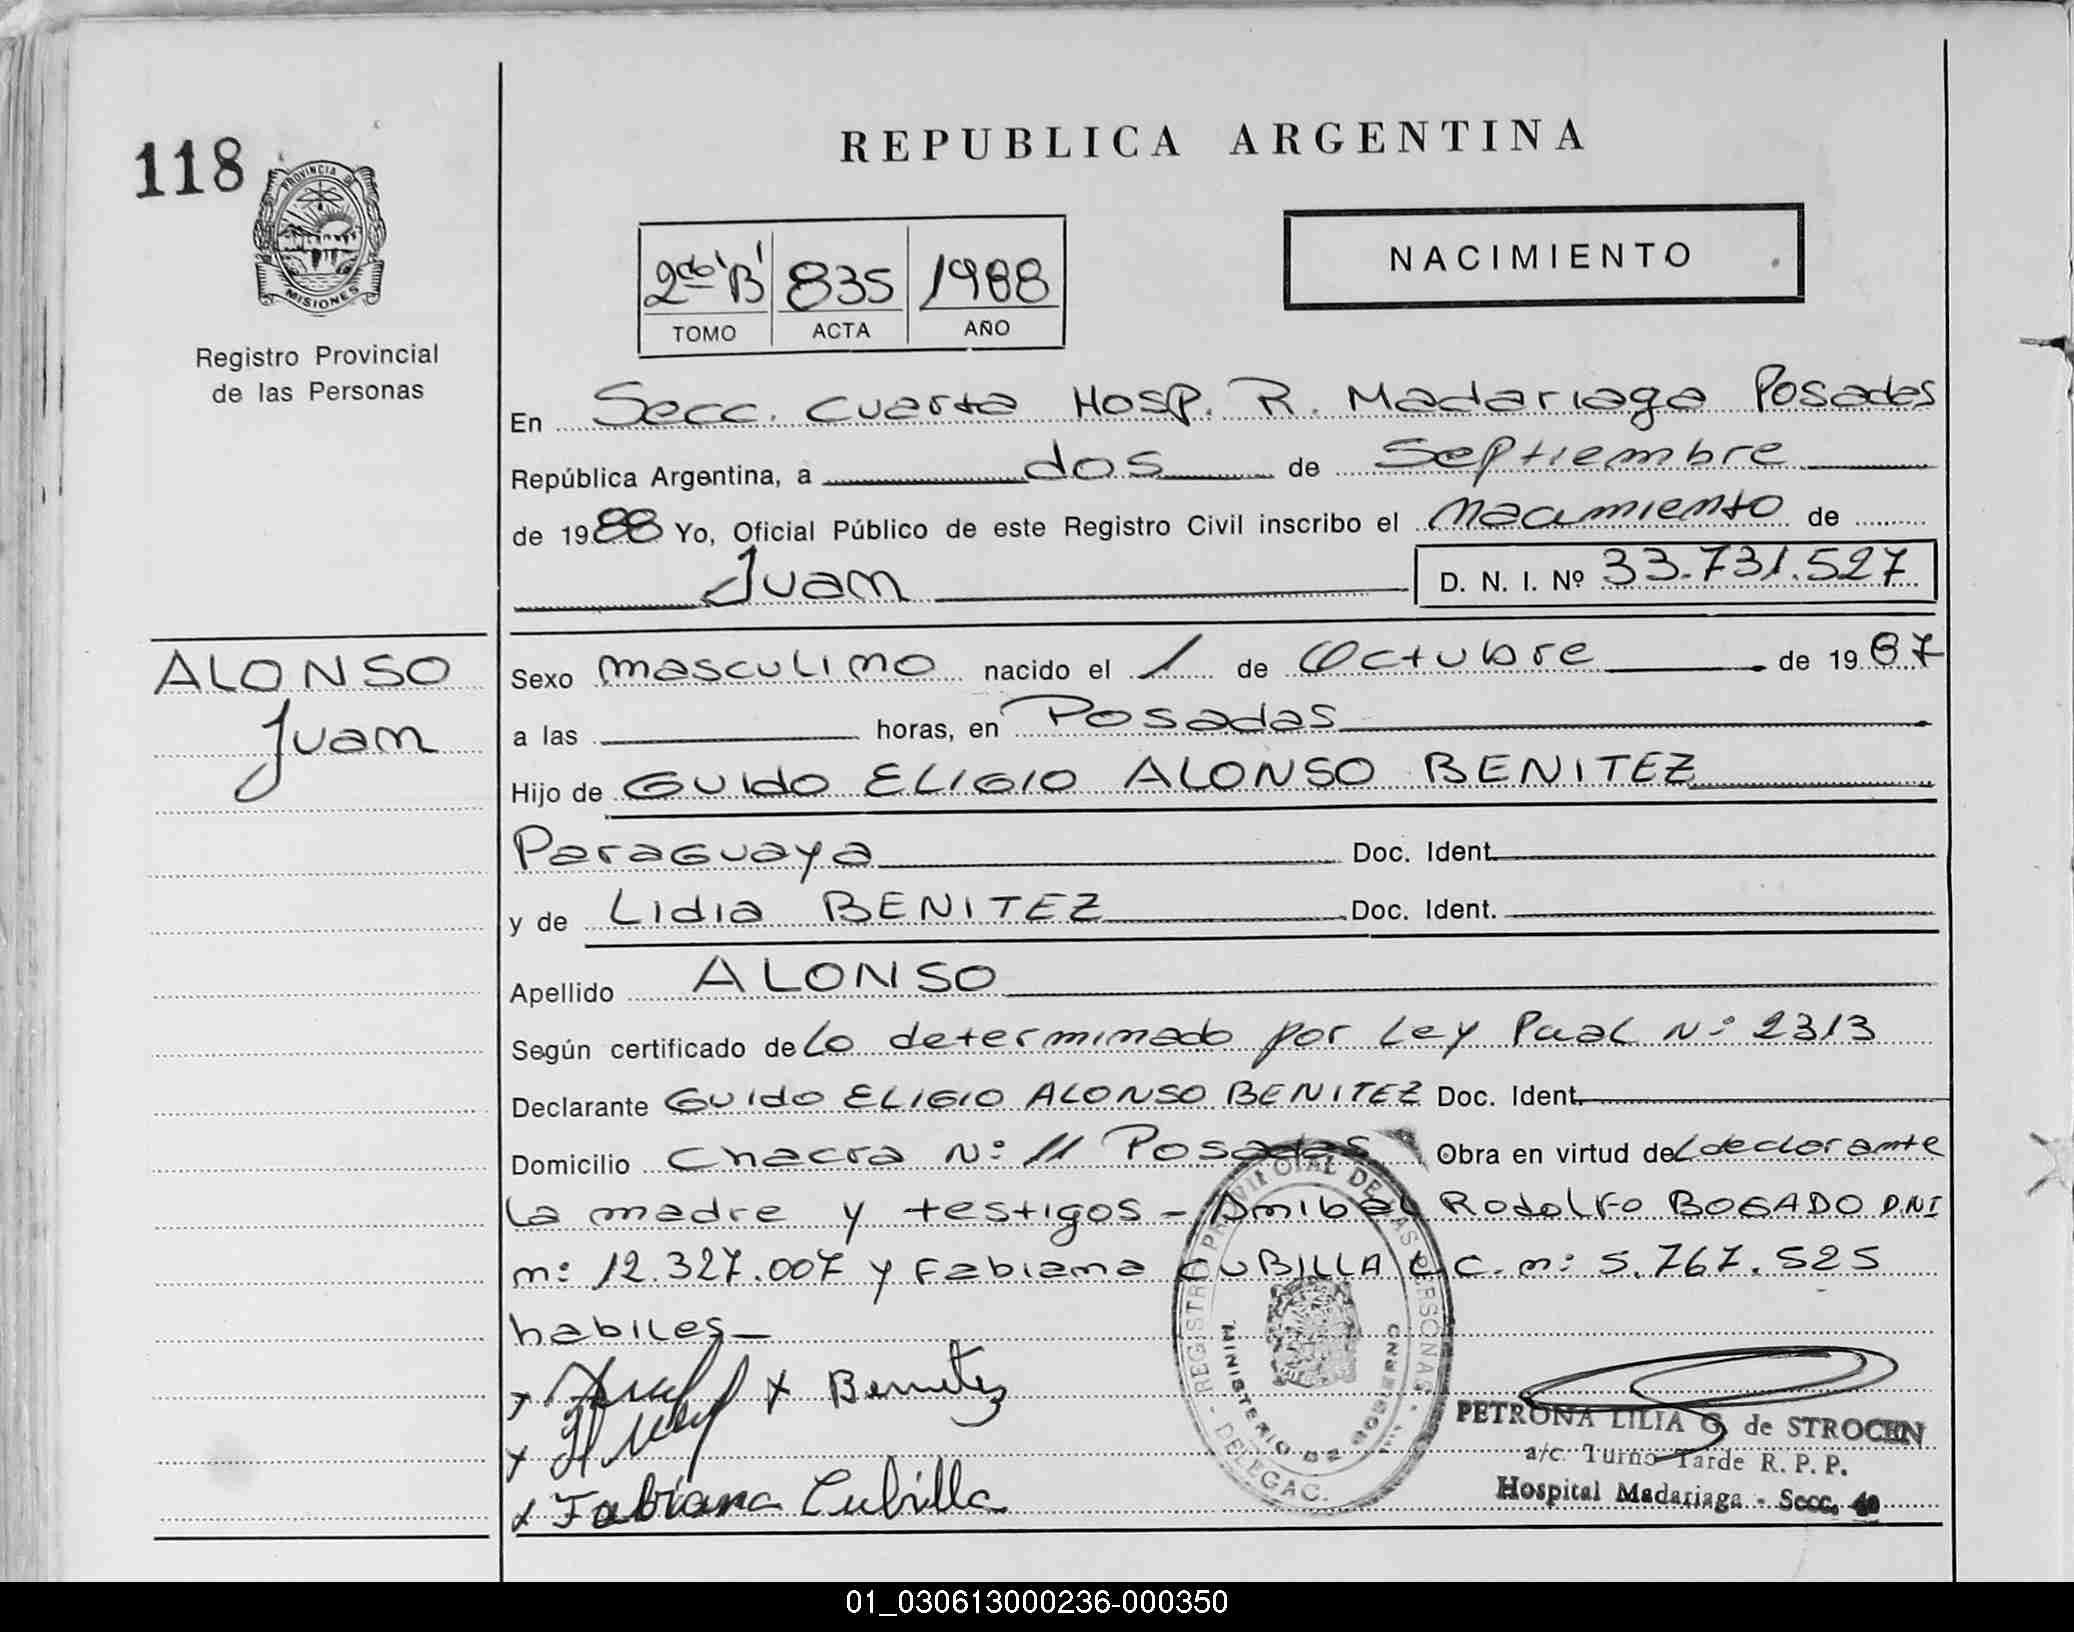 118
PROVINCIA DE
MISIONES
Registro Provincial
de las Personas
REPUBLICA ARGENTINA
2do 'B' 835 1988
TOMO ACTA AÑO
NACIMIENTO
En Secc. Cuarta Hosp. R. Madariaga Posadas
República Argentina, a dos de Septiembre
de 1988 Yo, Oficial Público de este Registro Civil inscribo el Nacimiento de
Juan D. N. I. Nº 33.731.527
ALONSO
Juan
Sexo masculino nacido el 1 de Octubre de 1987
a las horas, en Posadas
Hijo de GUIDO ELIGIO ALONSO BENITEZ
Paraguaya Doc. Ident.
y de Lidia BENITEZ Doc. Ident.
Apellido ALONSO
Según certificado de lo determinado por Ley Pcial Nº 2313
Declarante GUIDO ELIGIO ALONSO BENITEZ Doc. Ident.
Domicilio Chacra Nº 11 Posadas Obra en virtud del declarante
la madre y testigos - Anibal Rodolfo BOGADO DNI
nº 12.327.007 y Fabiana CUBILLA C. nº 5.767.525
habiles
x Benitez
x
x Fabiana Cubilla
REGISTRO PROVINCIAL DE LAS PERSONAS
MINISTERIO DE GOBIERNO
DELEGAC.
PETRONA LILIA G. de STROCEN
a/c. Turno Tarde R. P. P.
Hospital Madariaga - Secc. 4a
01_030613000236-000350